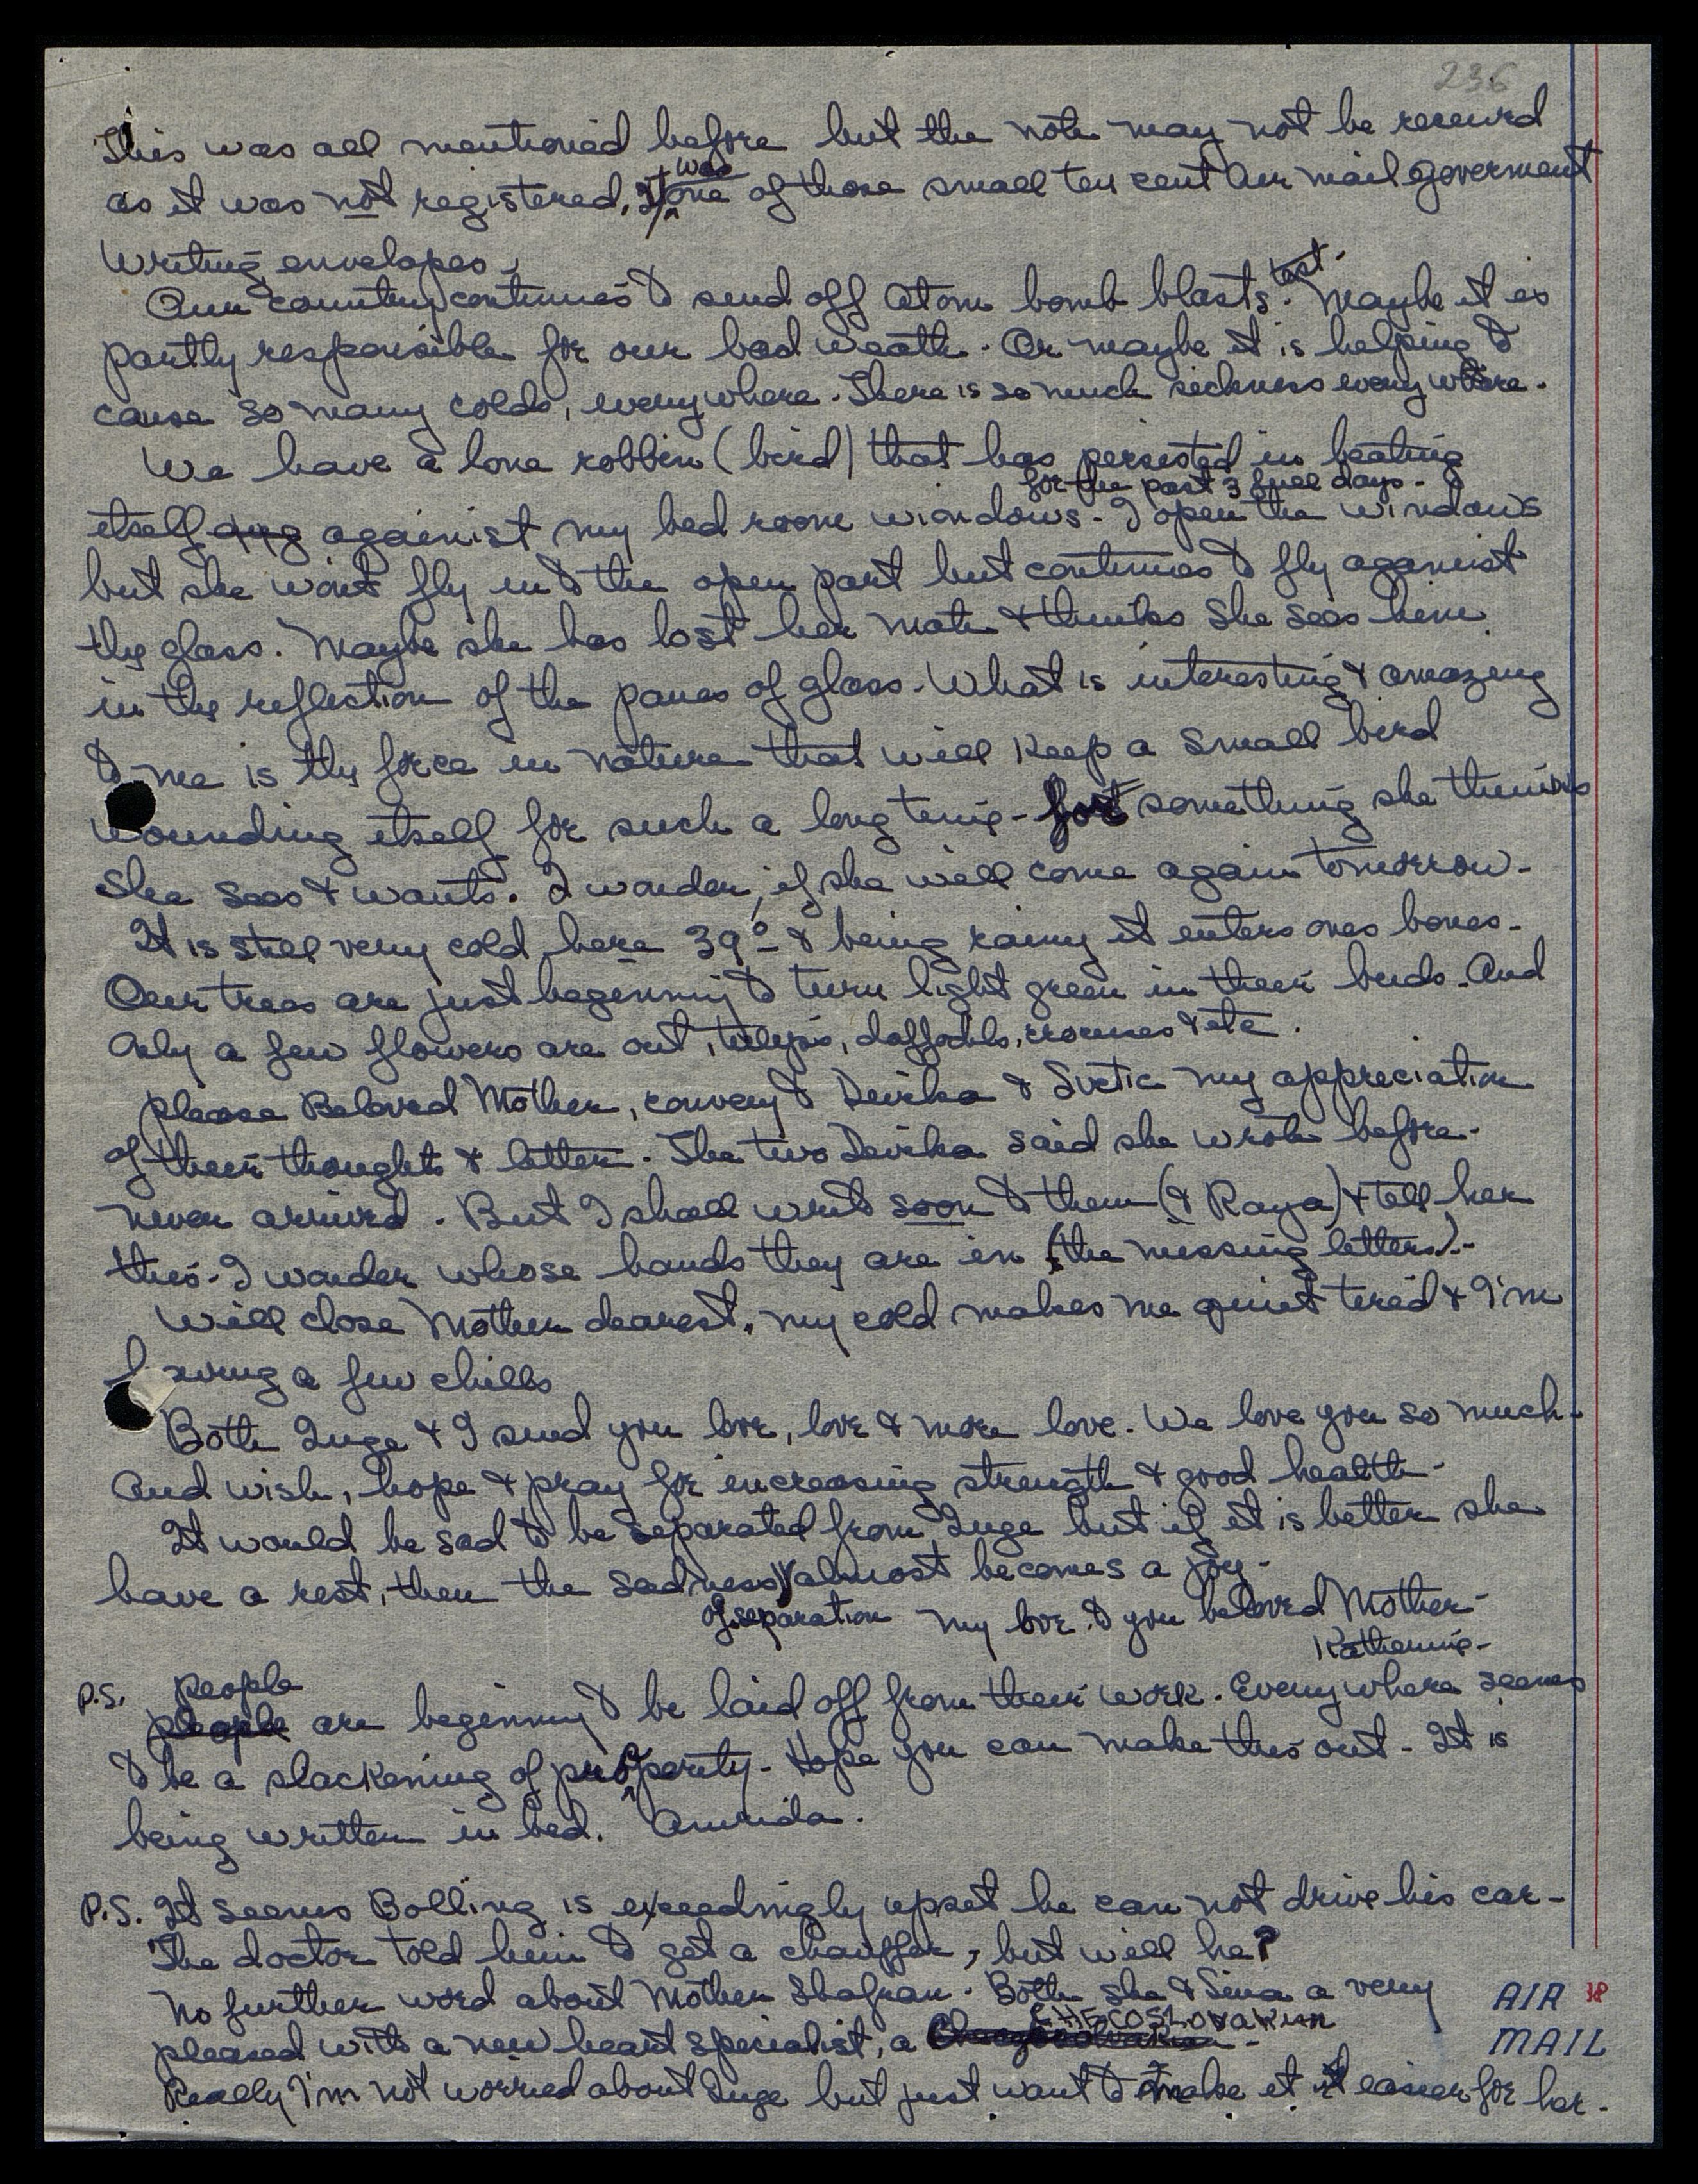 236
This was all mentioned before but the note may not be received
as it was not registered, It was one of those small ten cent air mail goverment
writing envelopes.
Our country continues to send off Atom bomb blasts test. Maybe it is
partly responsible for our bad weath. Or maybe it is helping to
cause so many colds, everywhere. There is so much sickness every where.
We have a lone robbin (bird) that has persisted in beating
for the past 3 full days -
itself against my bed room wiandows - I open the windows
but she wont fly into the open part but continues to fly against
the glass. Maybe she has lost her mate & thinks she sees him
in the reflection of the panes of glass. What is interesting & amazing
to me is the force in nature that will keep a small bird
wounding itself for such a long time - for something she thinks
she sees & wants. I wonder, if she will come again tomorrow -
It is still very cold here 39° & being rainy it enters ones bones -
Our trees are just beginning to turn light green in their buds. And
only a few flowers are out, tulips, daffodils, crocuses & etc.
please Beloved Mother, convey to Devika & Svetic my appreciation
of their thoughts & letter. The two Devika said she wrote before -
never arrived. But I shall write soon to them (& Raya) & tell her
this - I wonder whose hands they are in (the missing letters) -
Will close Mother dearest, my cold makes me quiet tired & I'm
having a few chills
Both Inge & I send you love, love & more love. We love you so much -
And wish, hope & pray for increasing strength & good health -
It would be sad to be separated from Inge but if it is better she
have a rest, then the sadness almost becomes a joy -
of separation my love to you beloved Mother -
Katherine -
P.S. people
people are beginning to be laid off from their work. Everywhere seems
to be a slackening of prosperity - Hope you can make this out - It is
being written in bed. Amrida.
P.S. It seems Bolling is exceedingly upset he can not drive his car -
The doctor told him to get a chauffer, but will he?
No further word about Mother Shafran. Both she & Sina a very
CHECOSLOVAKIAN
pleased with a new heart specialist, a
Really I'm not worried about Inge but just want to make it easier for her.
AIR
MAIL